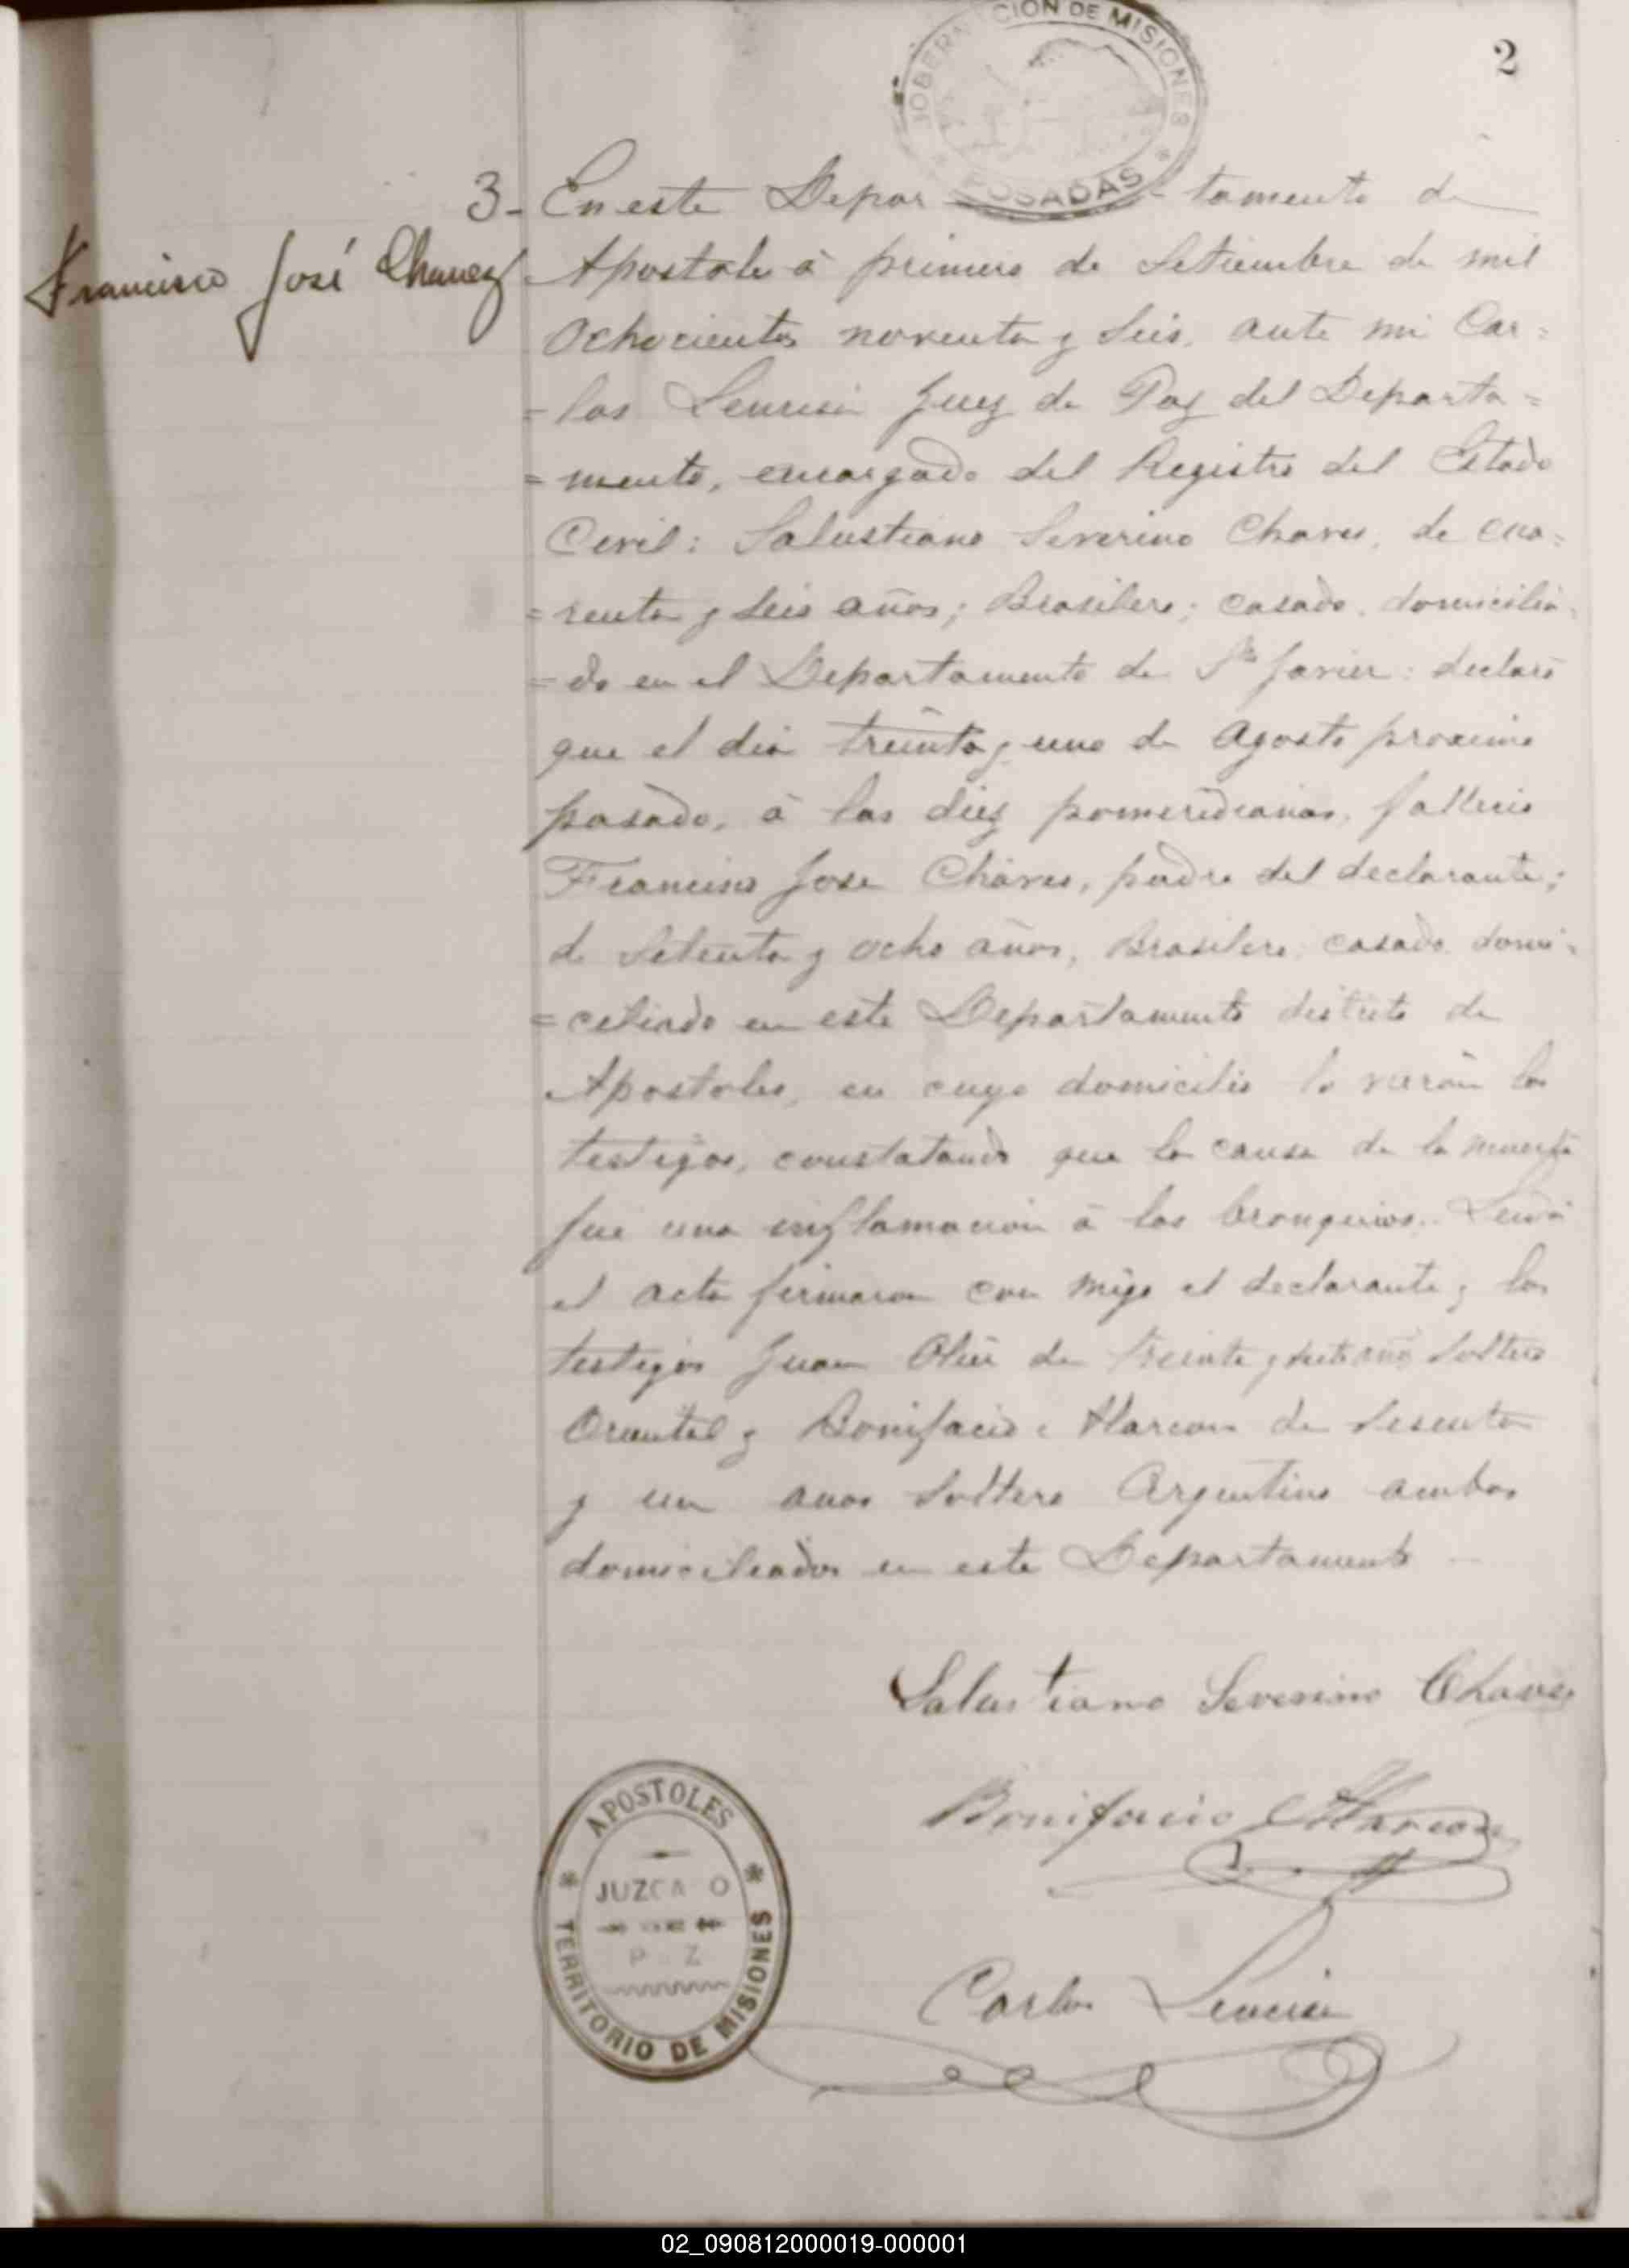 GOBERNACION DE MISIONES
POSADAS
2
3- En este Depar - tamento de
Francisco José Chavez
Apostoles á primero de Setiembre de mil
Ochocientos noventa y Seis, ante mi Car=
=los Juez de Paz del Departa=
=mento, encargado del Registro del Estado
Civil: Salustiano Severino Chaves, de cua=
=renta y Seis años; Brasilero; casado, domicilia=
=do en el Departamento de Sn Javier: declaró
que el dia treinta y uno de Agosto proximo
pasado, á las diez pomeridianas, fallecio
Francisco Jose Chaves, padre del declarante;
de Setenta y ocho años, Brasilero, casado, domi=
=ciliado en este Departamento distrito de
Apostoles, en cuyo domicilio lo los
testigos, constatando que la causa de la muerte
fué una inflamacion á los bronquios. Leida
el acta firmaron con migo el declarante y los
testigos Juan de treinta y siete años Soltero
Oriental y Bonifacio Alarcon de Sesenta
y un años Soltero Argentino ambos
domiciliados en este Departamento
Salustiano Severino Chaves
Bonifacio Alarcon
Carlos
APOSTOLES
JUZGADO
P Z
TERRITORIO DE MISIONES
02_090812000019-000001